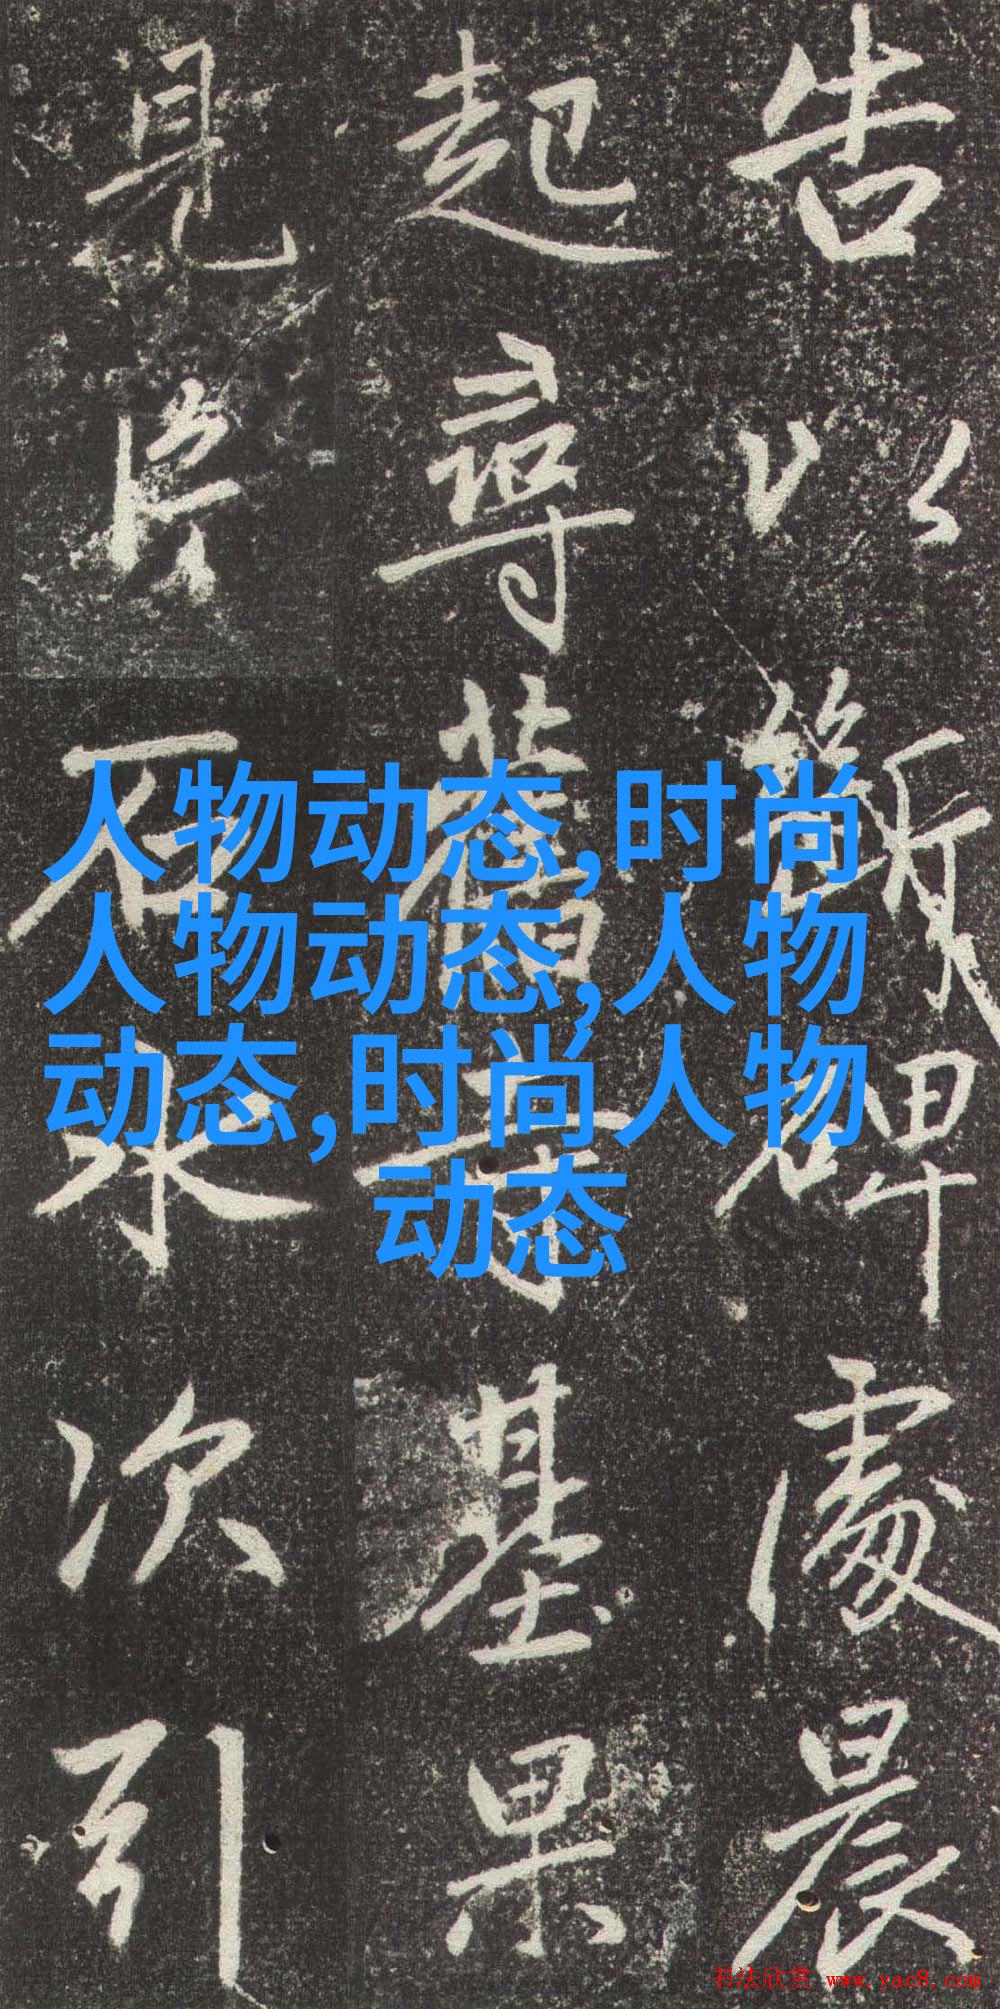 告以碑處晨
起尋舊基果
見片石次引
人物动态,时尚
人物动态,人物
动态,时尚人物
动态
书法欣赏 www.yac8.com